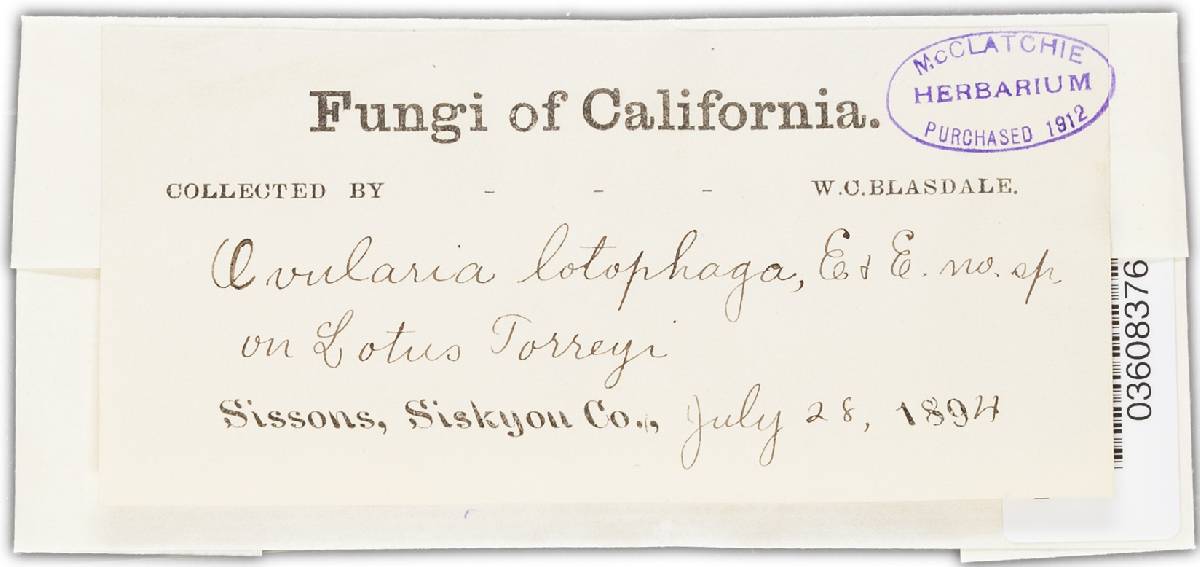 McCLATCHIE
HERBARIUM
PURCHASED 1912
Fungi of California.
COLLECTED BY - - - W.C.BLASDALE.
Ovularia lotophaga, E & E. no. sp.
on Lotus Torreyi
Sissons, Siskyou Co., July 28, 1894
03608376